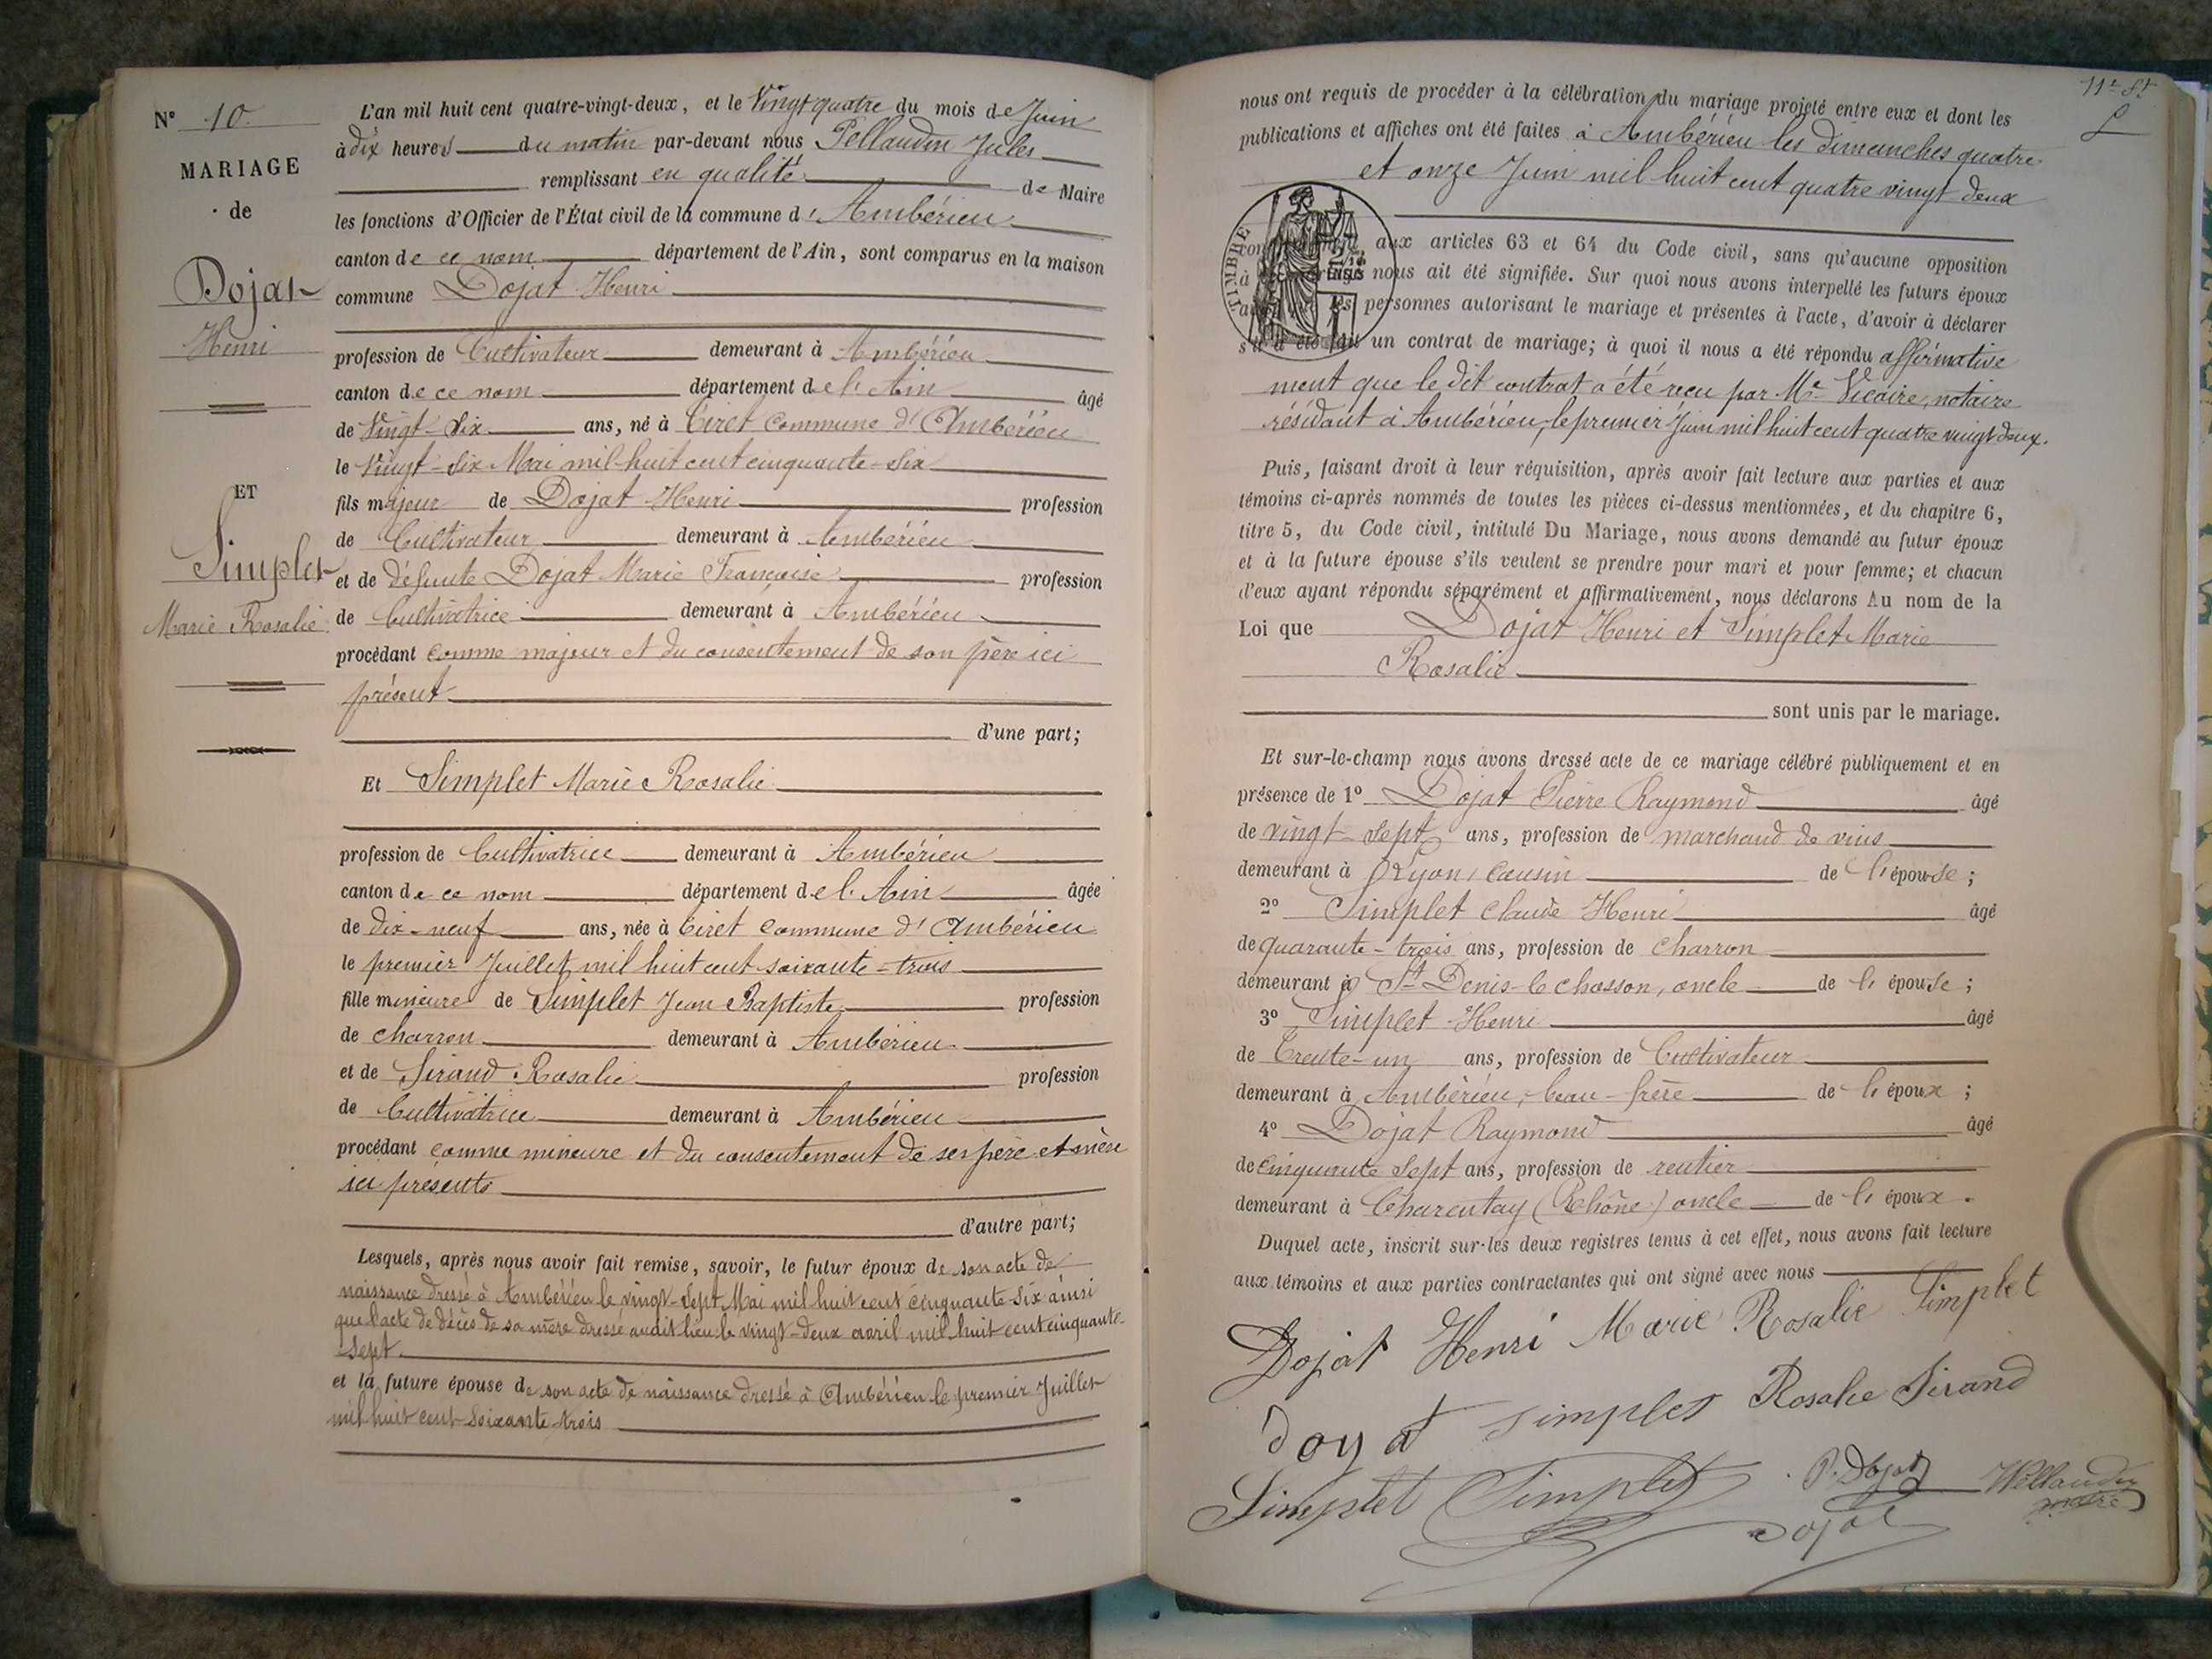 N° 10
MARIAGE
de
Dojat
Henri
ET
Simplet
Marie Rosalie
L'an mil huit cent quatre-vingt-deux, et le Vingt quatre du mois de Juin
à dix heures du matin par-devant nous Pellaudin Jules
remplissant en qualité de Maire
les fonctions d'Officier de l'État civil de la commune d' Ambérieu
canton de ce nom département de l'Ain, sont comparus en la maison
commune Dojat Henri
profession de Cultivateur demeurant à Ambérieu
canton de ce nom département de l'Ain âgé
de Vingt-Six ans, né à Tiret commune d'Ambérieu
le Vingt-Six Mai mil huit cent cinquante-Six
fils majeur de Dojat Henri profession
de Cultivateur demeurant à Ambérieu
et de défunte Dojat Marie Françoise profession
de Cultivatrice demeurant à Ambérieu
procédant comme majeur et du consentement de son père ici
présent
d'une part;
Et Simplet Marie Rosalie
profession de Cultivatrice demeurant à Ambérieu
canton de ce nom département de l'Ain âgée
de dix-neuf ans, née à Tiret commune d'Ambérieu
le premier Juillet mil huit cent soixante-trois
fille mineure de Simplet Jean Baptiste profession
de charron demeurant à Ambérieu
et de Sirand Rosalie profession
de Cultivatrice demeurant à Ambérieu
procédant comme mineure et du consentement de ses père et mère
ici présents
d'autre part;
Lesquels, après nous avoir fait remise, savoir, le futur époux de son acte de
naissance dressé à Ambérieu le vingt-Sept Mai mil huit cent cinquante Six ainsi
que l'acte de décès de sa mère dressé audit lieu le vingt-deux avril mil huit cent cinquante-
Sept.
et la future épouse de son acte de naissance dressé à Ambérieu le premier Juillet
mil huit cent Soixante trois
nous ont requis de procéder à la célébration du mariage projeté entre eux et dont les
publications et affiches ont été faites à Ambérieu les dimanches quatre
et onze Juin mil huit cent quatre vingt deux
TIMBRE
aux articles 63 et 64 du Code civil, sans qu'aucune opposition
à nous ait été signifiée. Sur quoi nous avons interpellé les futurs époux
les personnes autorisant le mariage et présentes à l'acte, d'avoir à déclarer
s'il a été fait un contrat de mariage; à quoi il nous a été répondu affirmative
ment que le dit contrat a été reçu par Me Vicaire, notaire
résidant à Ambérieu, le premier Juin mil huit cent quatre vingt deux.
Puis, faisant droit à leur réquisition, après avoir fait lecture aux parties et aux
témoins ci-après nommés de toutes les pièces ci-dessus mentionnées, et du chapitre 6,
titre 5, du Code civil, intitulé Du Mariage, nous avons demandé au futur époux
et à la future épouse s'ils veulent se prendre pour mari et pour femme; et chacun
d'eux ayant répondu séparément et affirmativement, nous déclarons Au nom de la
Loi que Dojat Henri et Simplet Marie
Rosalie
sont unis par le mariage.
Et sur-le-champ nous avons dressé acte de ce mariage célébré publiquement et en
présence de 1° Dojat Pierre Raymond âgé
de vingt-Sept ans, profession de marchand de vins
demeurant à Lyon, Cousin de l'épouse;
2° Simplet Claude Henri âgé
de quarante-trois ans, profession de charron
demeurant à St Denis-le chosson, oncle de l'épouse;
3° Simplet Henri âgé
de Trente-un ans, profession de Cultivateur
demeurant à Ambérieu, beau-frère de l'époux;
4° Dojat Raymond âgé
de cinquante Sept ans, profession de rentier
demeurant à Charentay (Rhône) oncle de l'époux.
Duquel acte, inscrit sur les deux registres tenus à cet effet, nous avons fait lecture
aux témoins et aux parties contractantes qui ont signé avec nous
Dojat Henri Marie Rosalie Simplet
doyat simplet Rosalie Sirand
Simplet Simplet P. Dojat Pellaudin
maire
Dojat